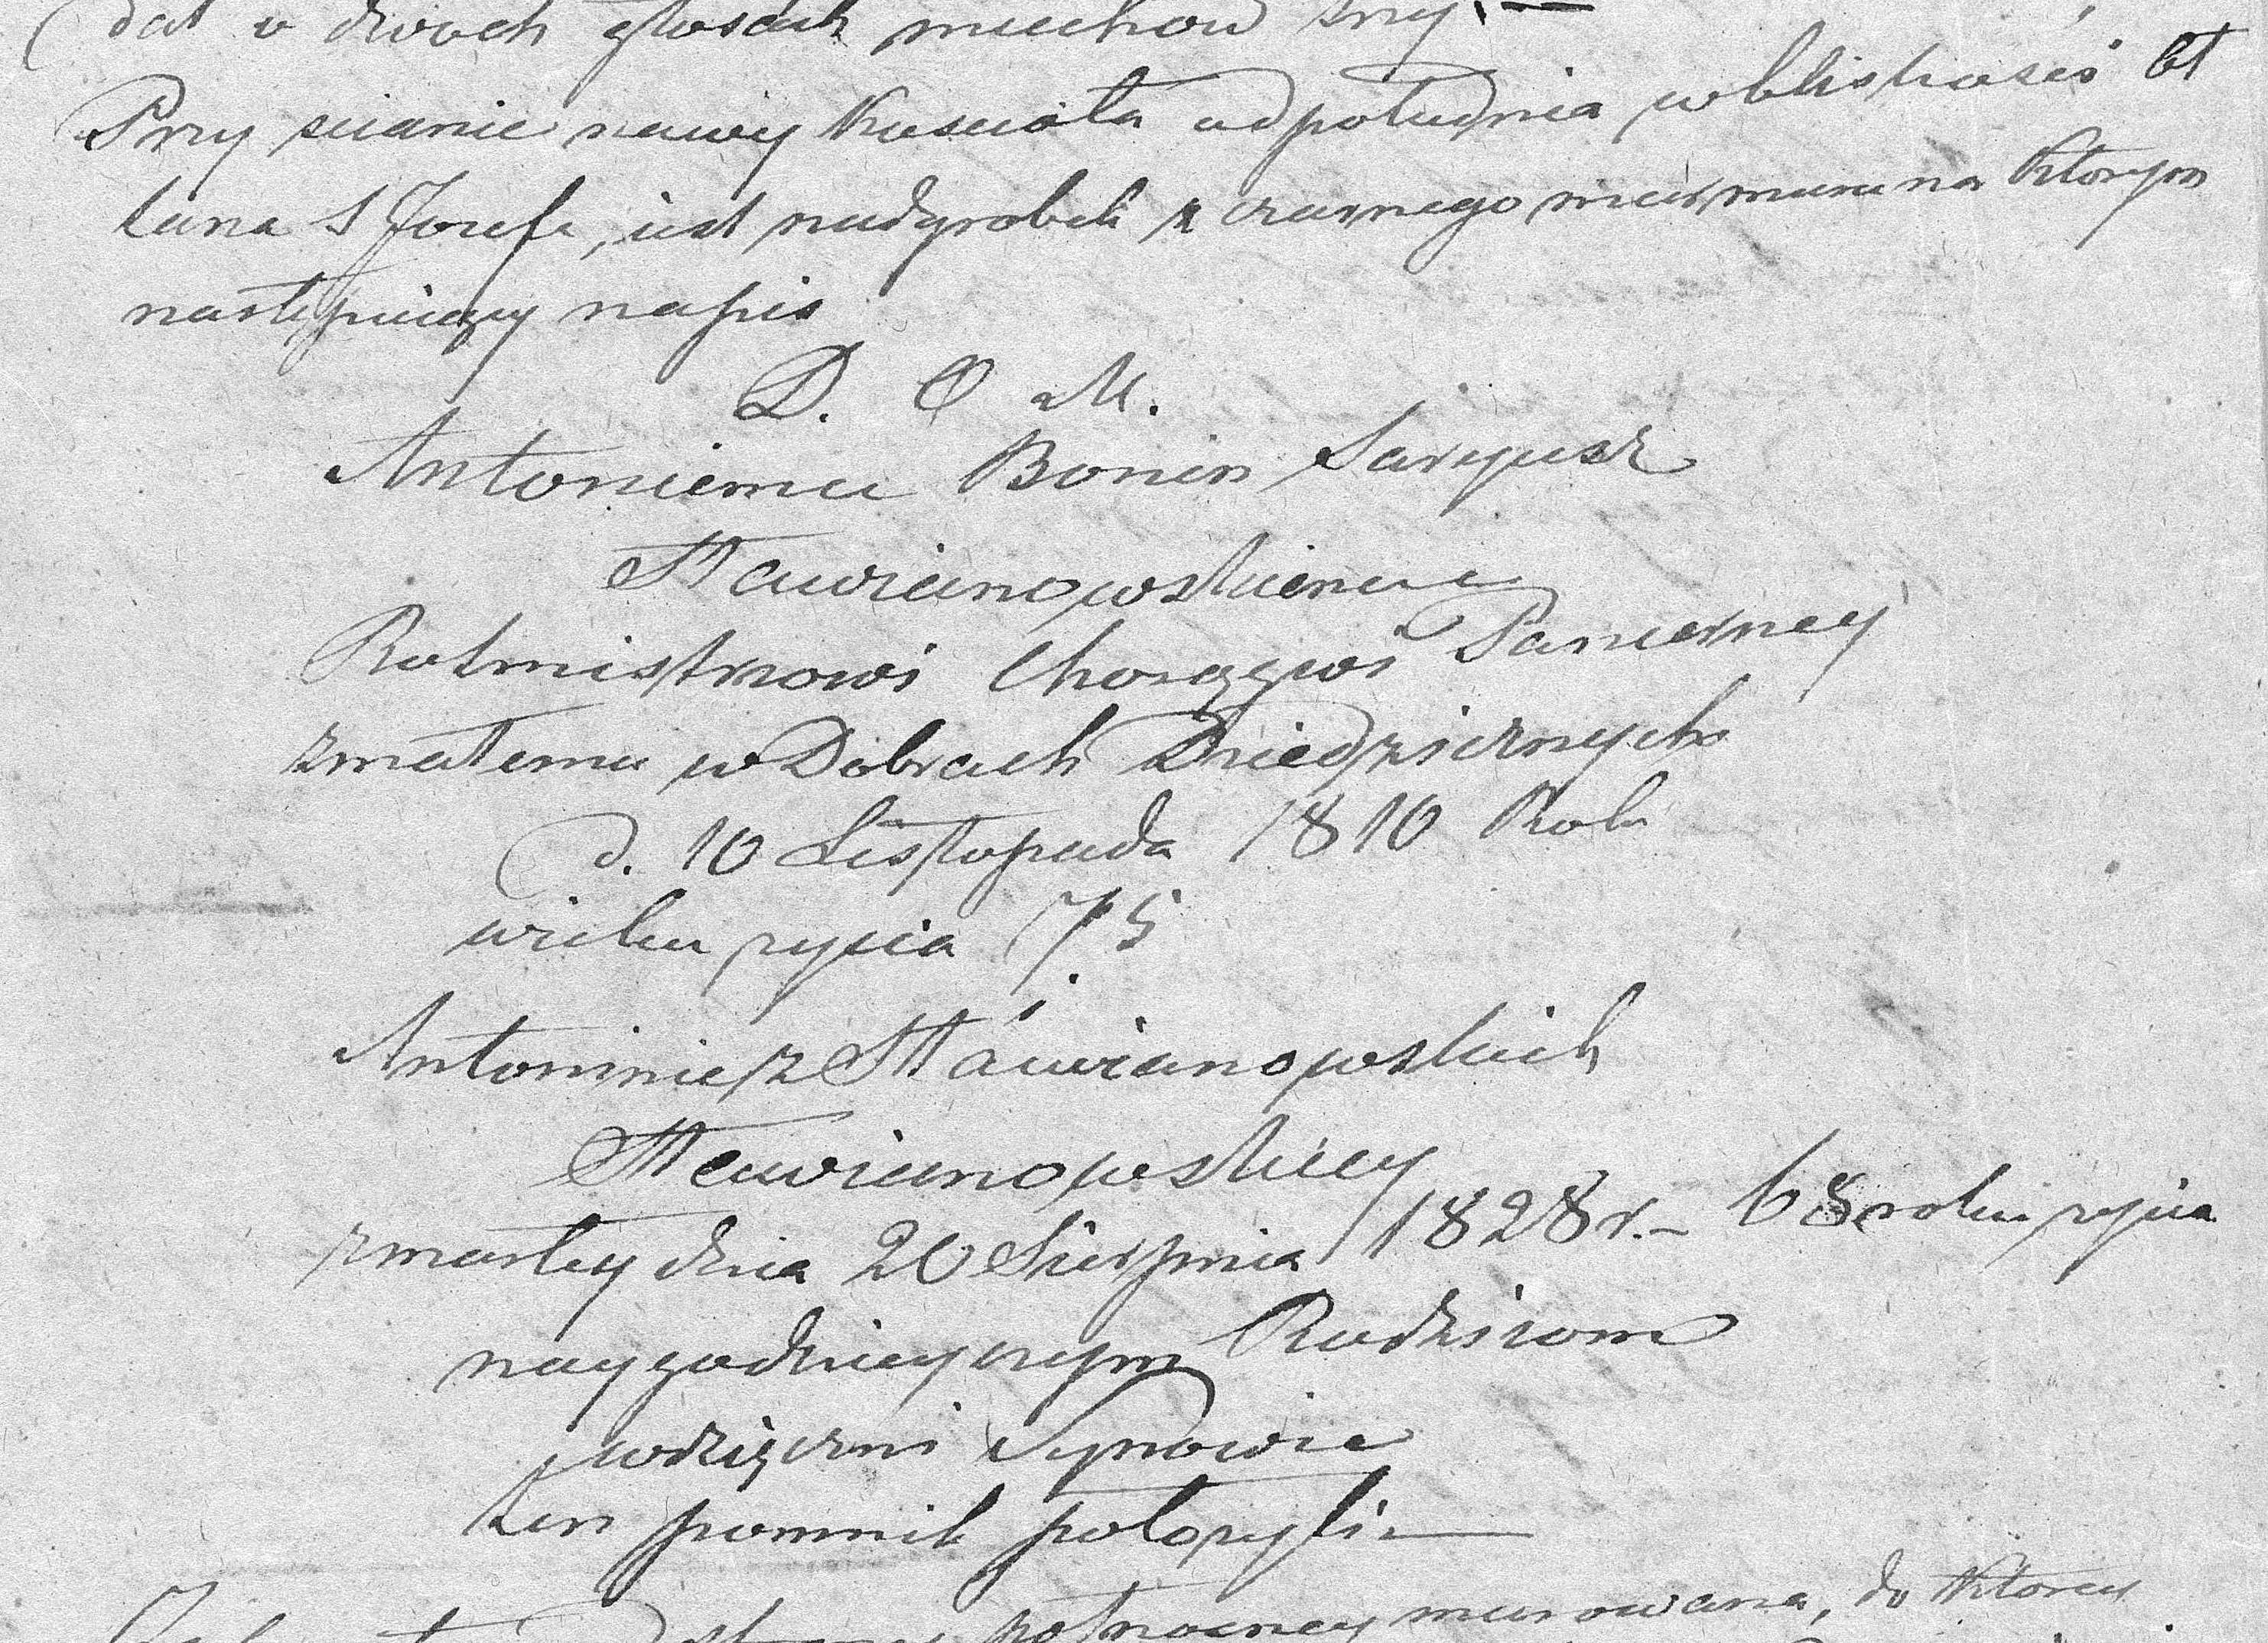 dał o dwoch głosach miechow trzy. —
Przy scianie nawy Koscioła od południa w bliskosci Oł
tarza S Jozefa, iest nadgrobek z czarnego marmuru na ktorym
następuiący napis
D. O M.
Antoniemu Bonin Saryusz
Stawianowskiemu
Rotmistrzowi Chorągwi Pancerney
zmałemu w Dobrach Dziedzicznych
d. 10 Listopada 1810 Roku
wieku życia 75
i
Antoninie z Stawianowskich
Stawianowskiey
zmarłey dnia 20 Sierpnia 1828 r. – 68 roku życia
naygodnieyszym Rodzicom
wdzięczni Synowie
ten pomnik położyli —
północney murowana, do ktorey